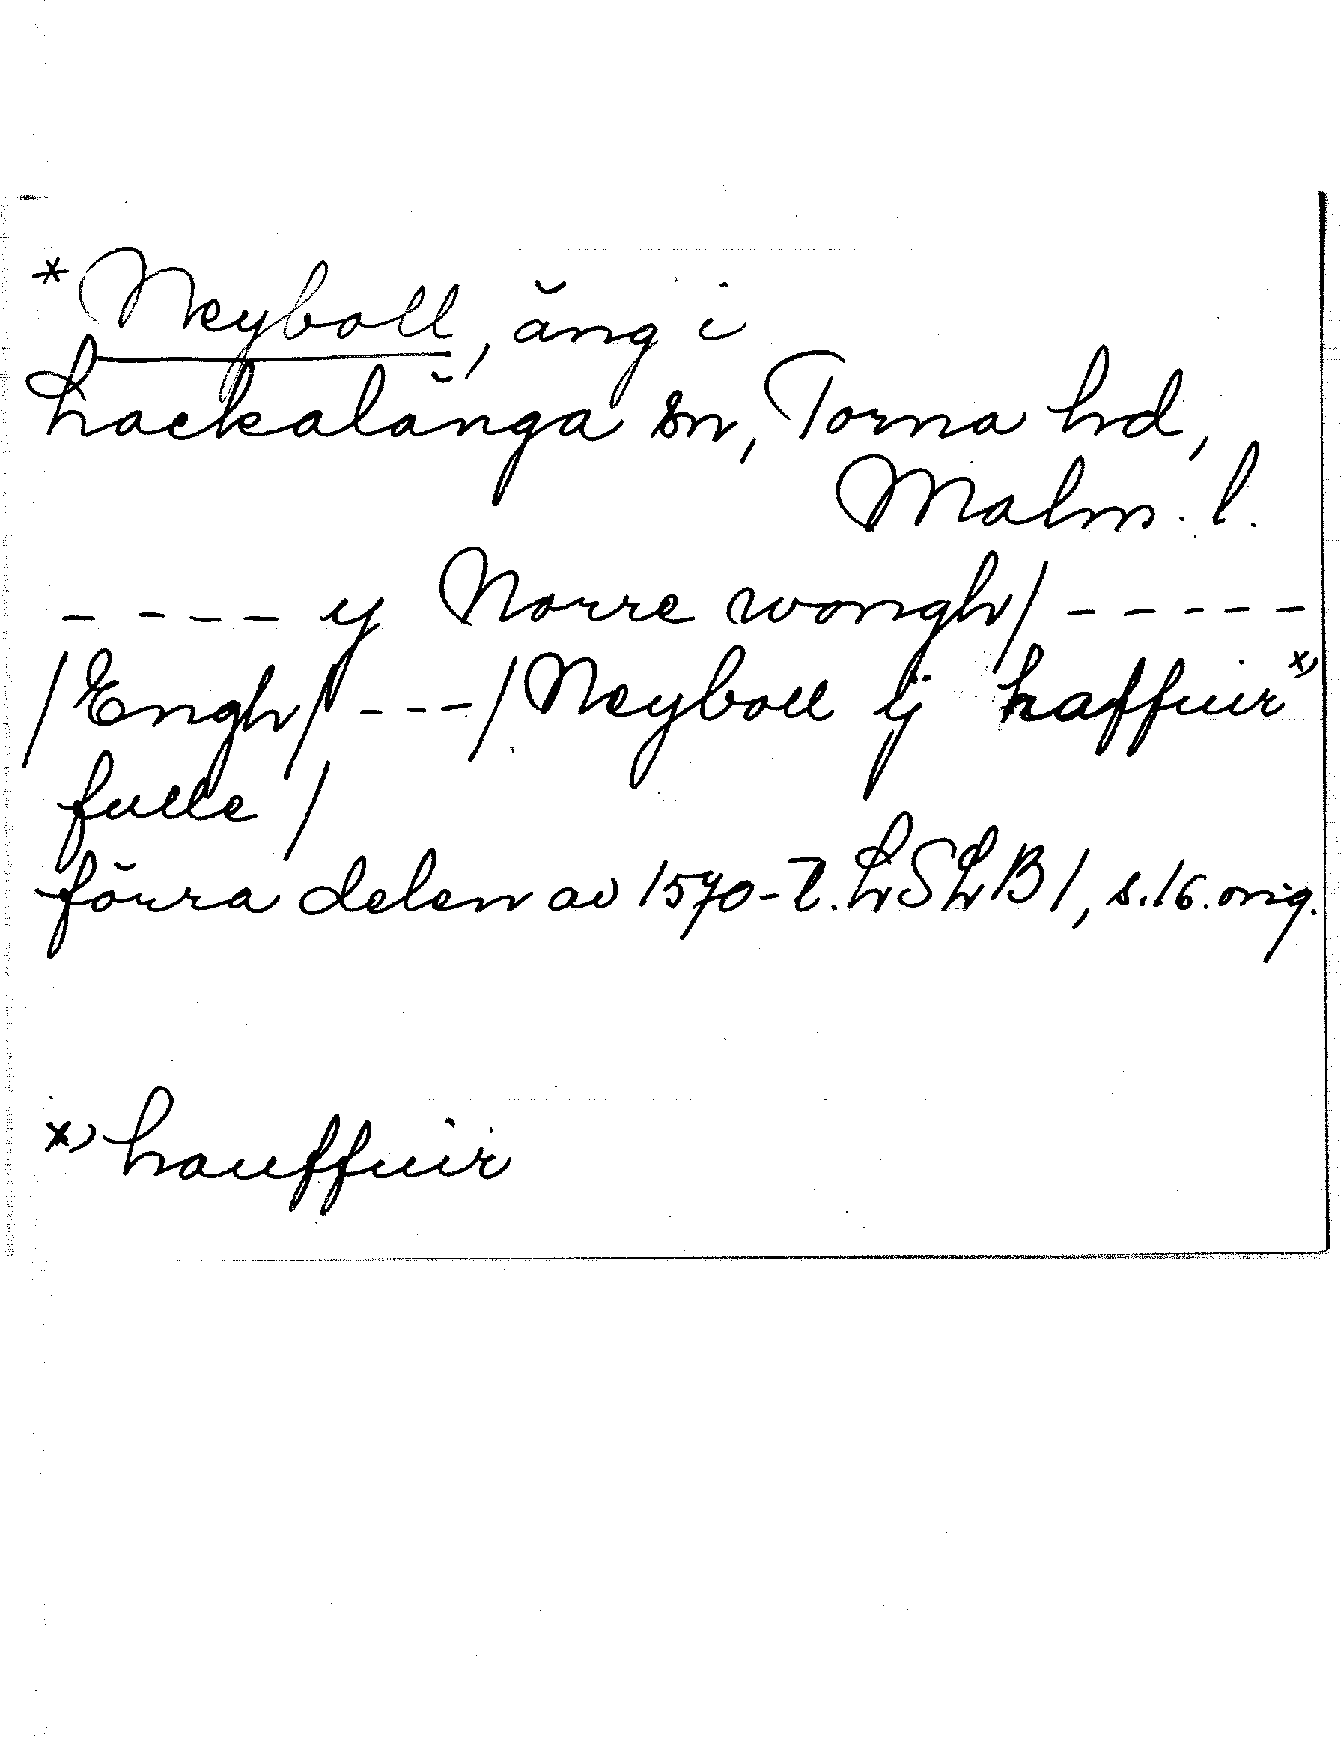 * Neyboll, äng i
Hackalänga sn, Torna hd,
Malm. l.
- - - - y Norre wongh / - - - - -
/ Engh / - - - / Neyboll ij haffuir x)
fulle /
förra delen av 1570-t. LSLB 1, s. 16. orig.
x) hauffuir